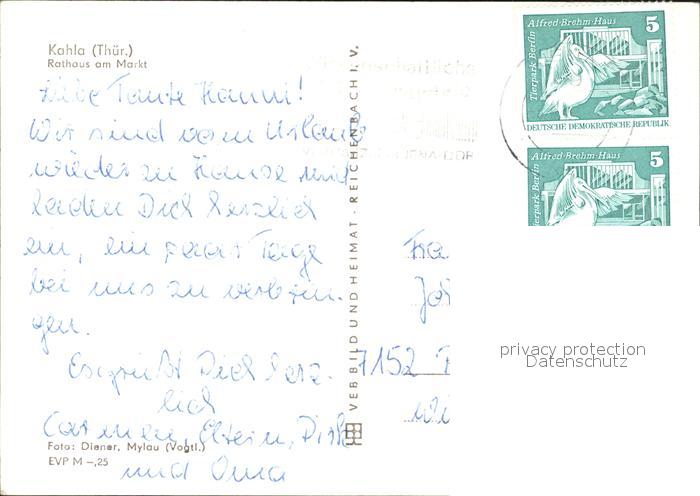 Kahla (Thür.)
Rathaus am Markt
Liebe Tante Hanni!
Wir sind vom Urlaub
wieder zu Hause und
laden Dich herzlich
ein, ein paar Tage
bei uns zu verbrin-
gen.
Es grüßt Dich herz-
lich
Carmen, Eltern, Dirk
und Oma
Foto: Diener, Mylau (Vogtl.)
EVP M –,25
VEB BILD UND HEIMAT · REICHENBACH I. V.
Alfred-Brehm-Haus
5
Tierpark Berlin
DEUTSCHE DEMOKRATISCHE REPUBLIK
Alfred-Brehm-Haus
5
Tierpark Berlin
7152
privacy protection
Datenschutz